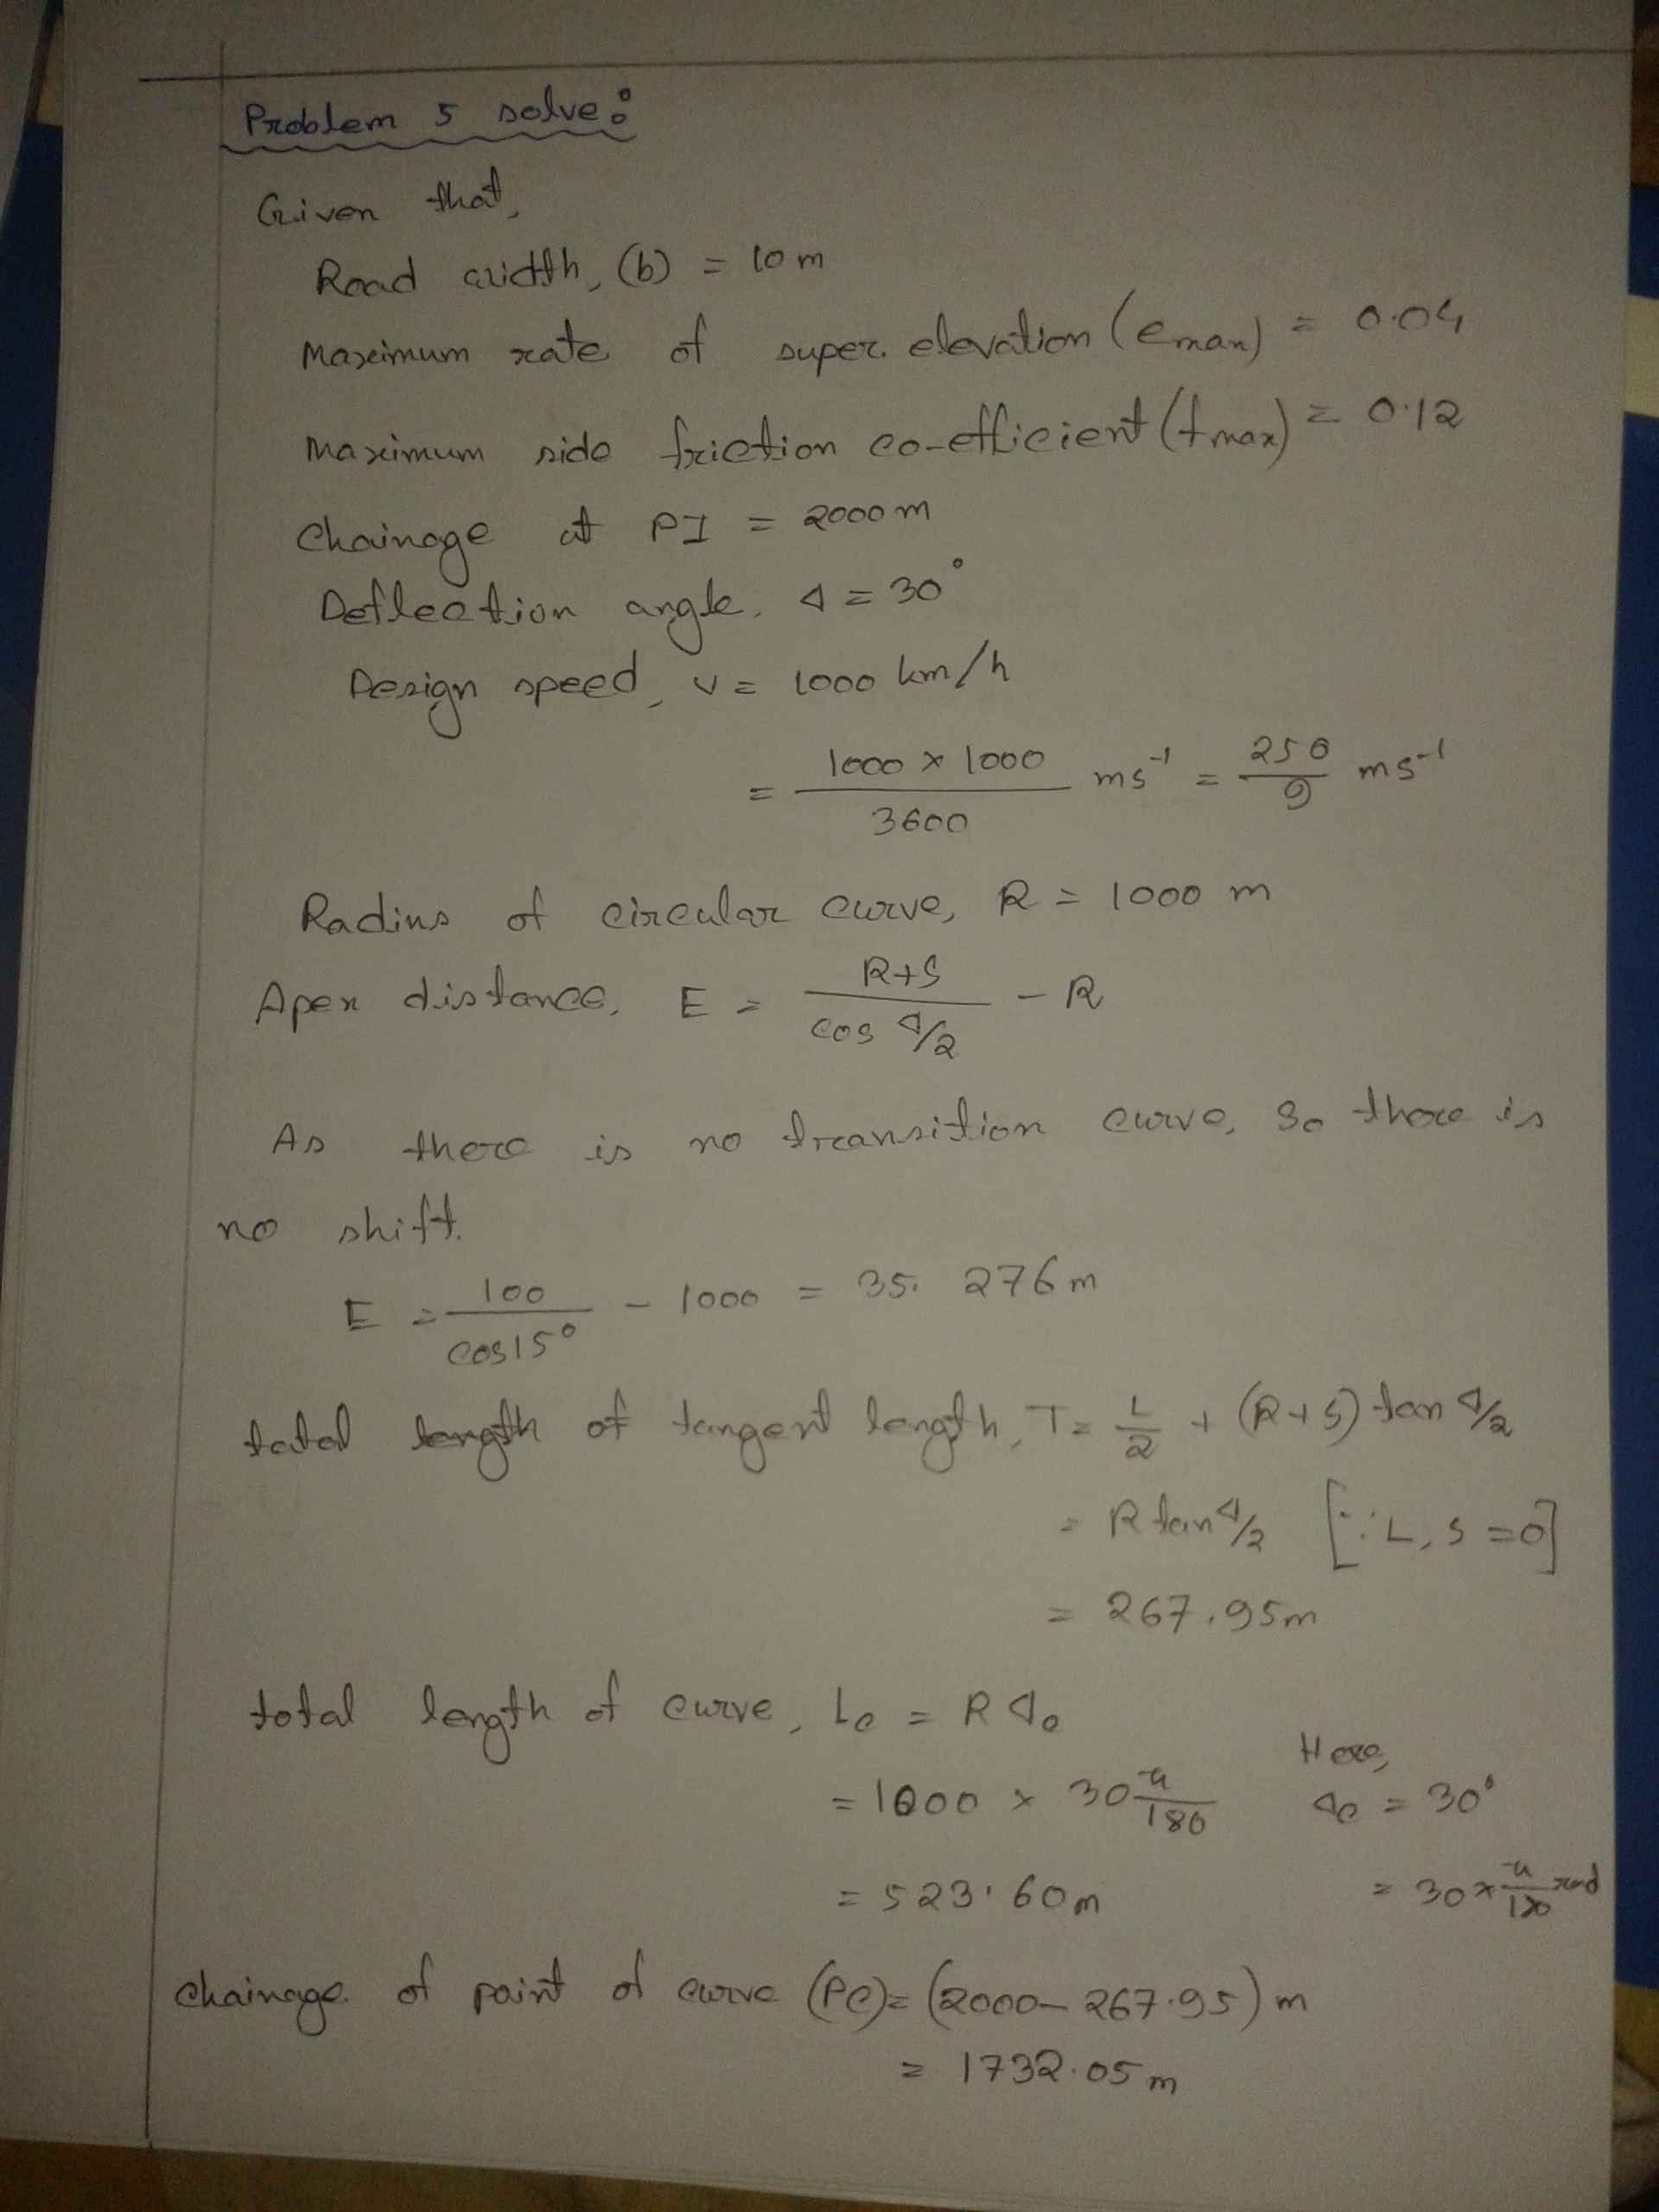 Problem 5 solve:
Given that,
Road width, (b) = 10 m
Maximum rate of super elevation (emax) = 0.04
Maximum side friction co-efficient (fmax) = 0.12
Chainage at PI = 2000 m
Deflection angle, Δ = 30°
Design speed, v = 1000 km/h
= (1000 × 1000)/3600 ms⁻¹ = 250/9 ms⁻¹
Radius of circular curve, R = 1000 m
Apex distance, E = (R+S)/(cos Δ/2) - R
As there is no transition curve, so there is
no shift.
E = 100/cos15° - 1000 = 35.276 m
total length of tangent length, T = L/2 + (R+S) tan Δ/2
= R tan Δ/2 [∵ L, S = 0]
= 267.95 m
total length of curve, Lc = R Δc
Here,
= 1000 × 30 π/180 Δc = 30°
= 523.60 m = 30 × π/180 rad
Chainage of point of curve (PC) = (2000 - 267.95) m
= 1732.05 m